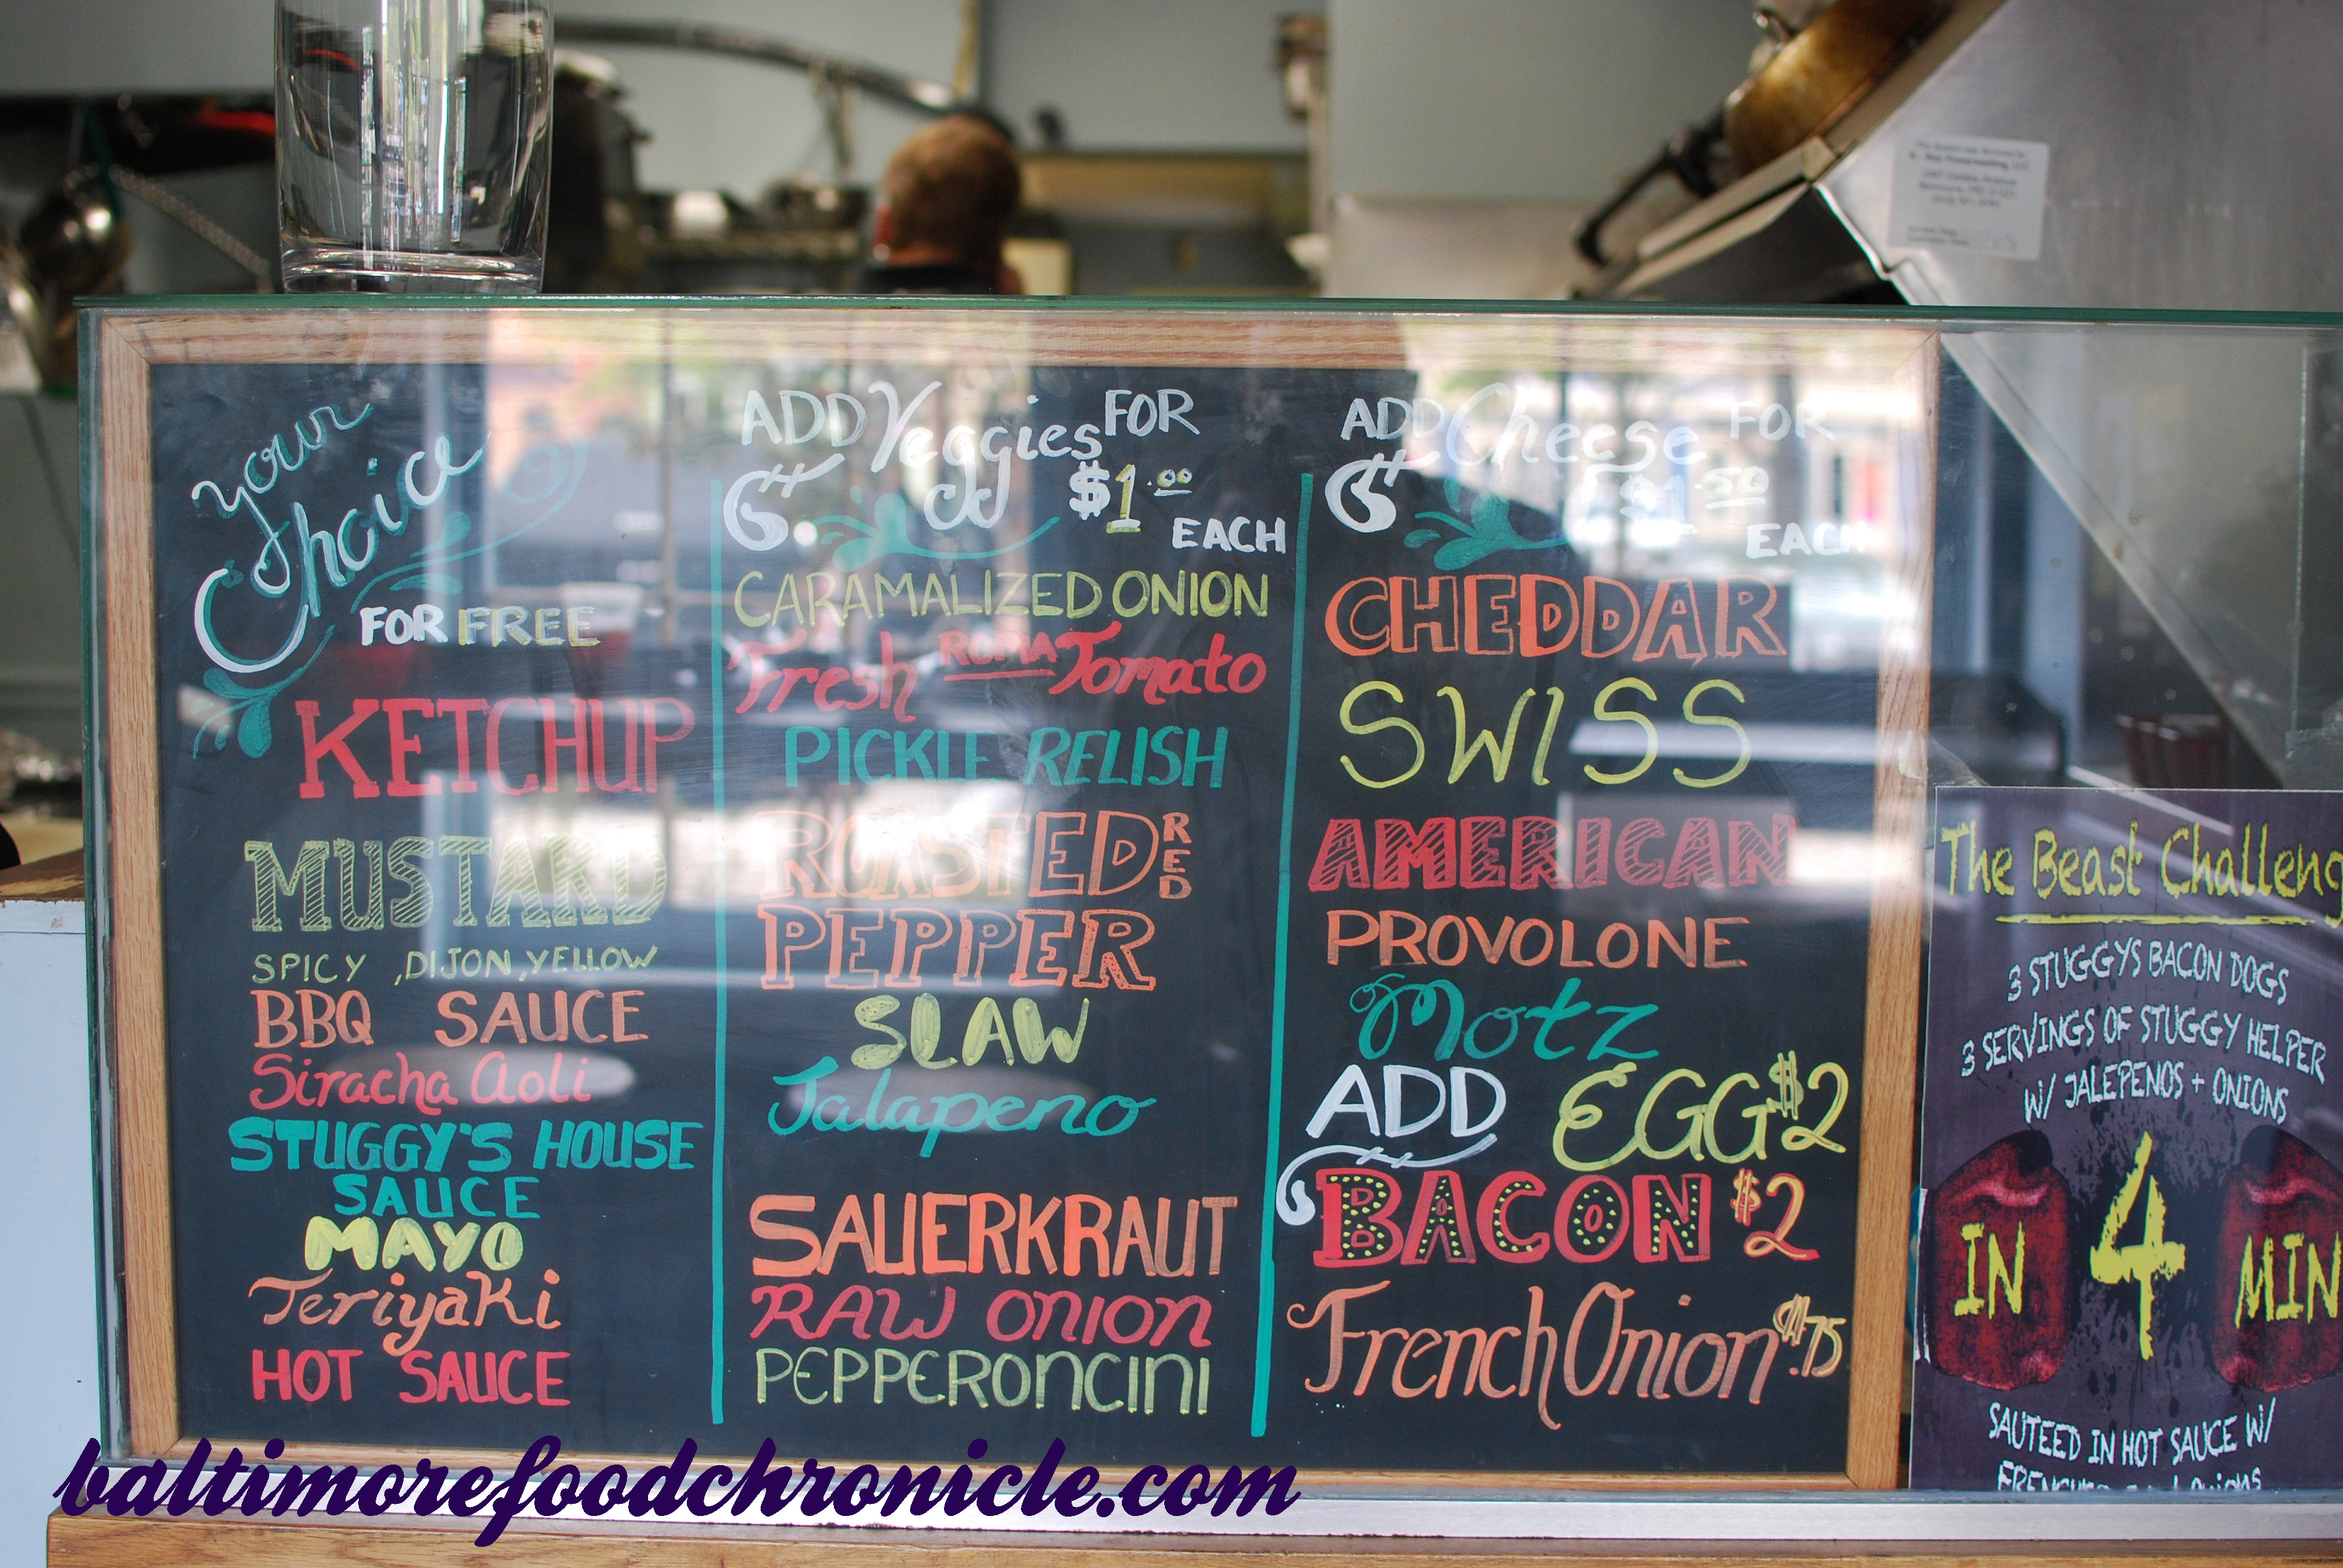 your
Choice
FOR FREE
KETCHUP
MUSTARD
SPICY ,DIJON,YELLOW
BBQ SAUCE
Siracha aoli
STUGGY'S HOUSE
SAUCE
MAYO
Teriyaki
HOT SAUCE
ADD Veggies FOR
$1.00
EACH
CARAMALIZED ONION
Fresh ROMA Tomato
PICKLE RELISH
ROASTED RED
PEPPER
SLAW
Jalapeno
SAUERKRAUT
RAW ONION
PEPPERONCINI
ADD Cheese FOR
$1.50
EACH
CHEDDAR
SWISS
AMERICAN
PROVOLONE
Motz
ADD EGG $2
BACON $2
French Onion $.75
The Beast Challeng
3 STUGGYS BACON DOGS
3 SERVINGS OF STUGGY HELPER
W/ JALEPENOS + ONIONS
IN 4 MIN
SAUTEED IN HOT SAUCE W/
baltimorefoodchronicle.com